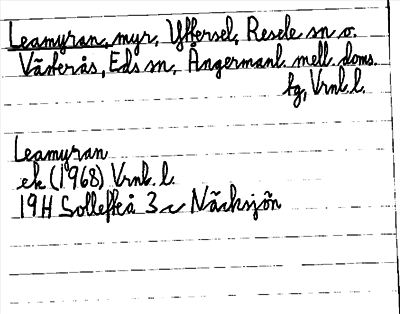 Leamyran, myr, Yttersel, Resele sn o.
Västerås, Eds sn, Ångermanl. mell. doms.
tg, Vrnl. l.
Leamyran
ek (1968) Vrnl. l.
19H Sollefteå 3 c Näcksjön